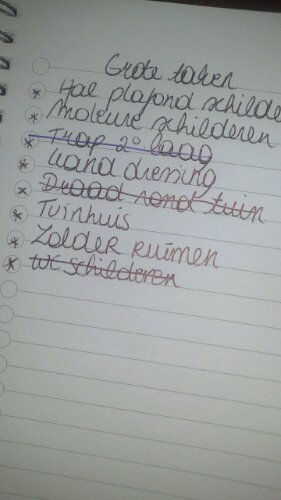 Grote taken
* Hal plafond schilde
* Moleure schilderen
* Trap 2° laag
* Wand dressing
* Draad rond tuin
* Tuinhuis
* Zolder ruimen
* WC schilderen